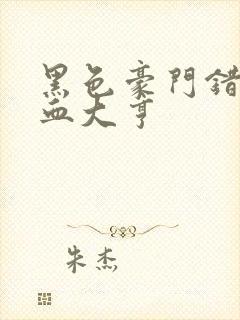 黑色豪門錯
血大亨
朱杰